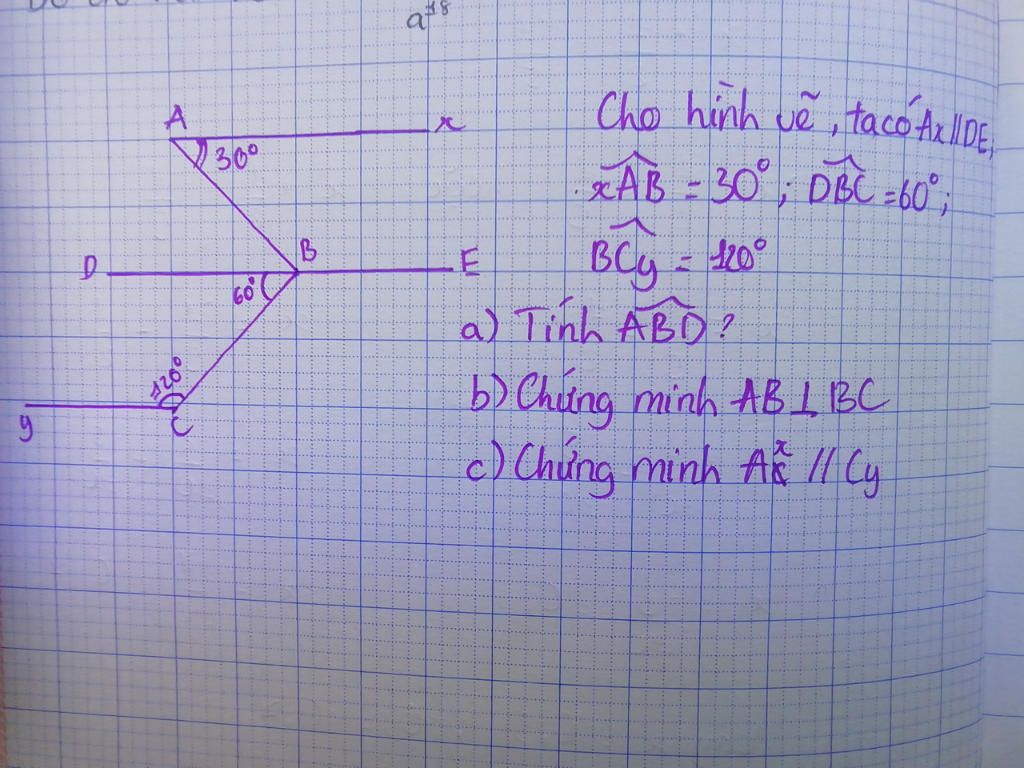 a¹⁸
A
x
30°
Cho hình vẽ, ta có Ax // DE,
xAB = 30°; DBC = 60°;
D
B
E
60°
BCy = 120°
a) Tính ABD?
120°
y
C
b) Chứng minh AB ⊥ BC
c) Chứng minh Ax // Cy